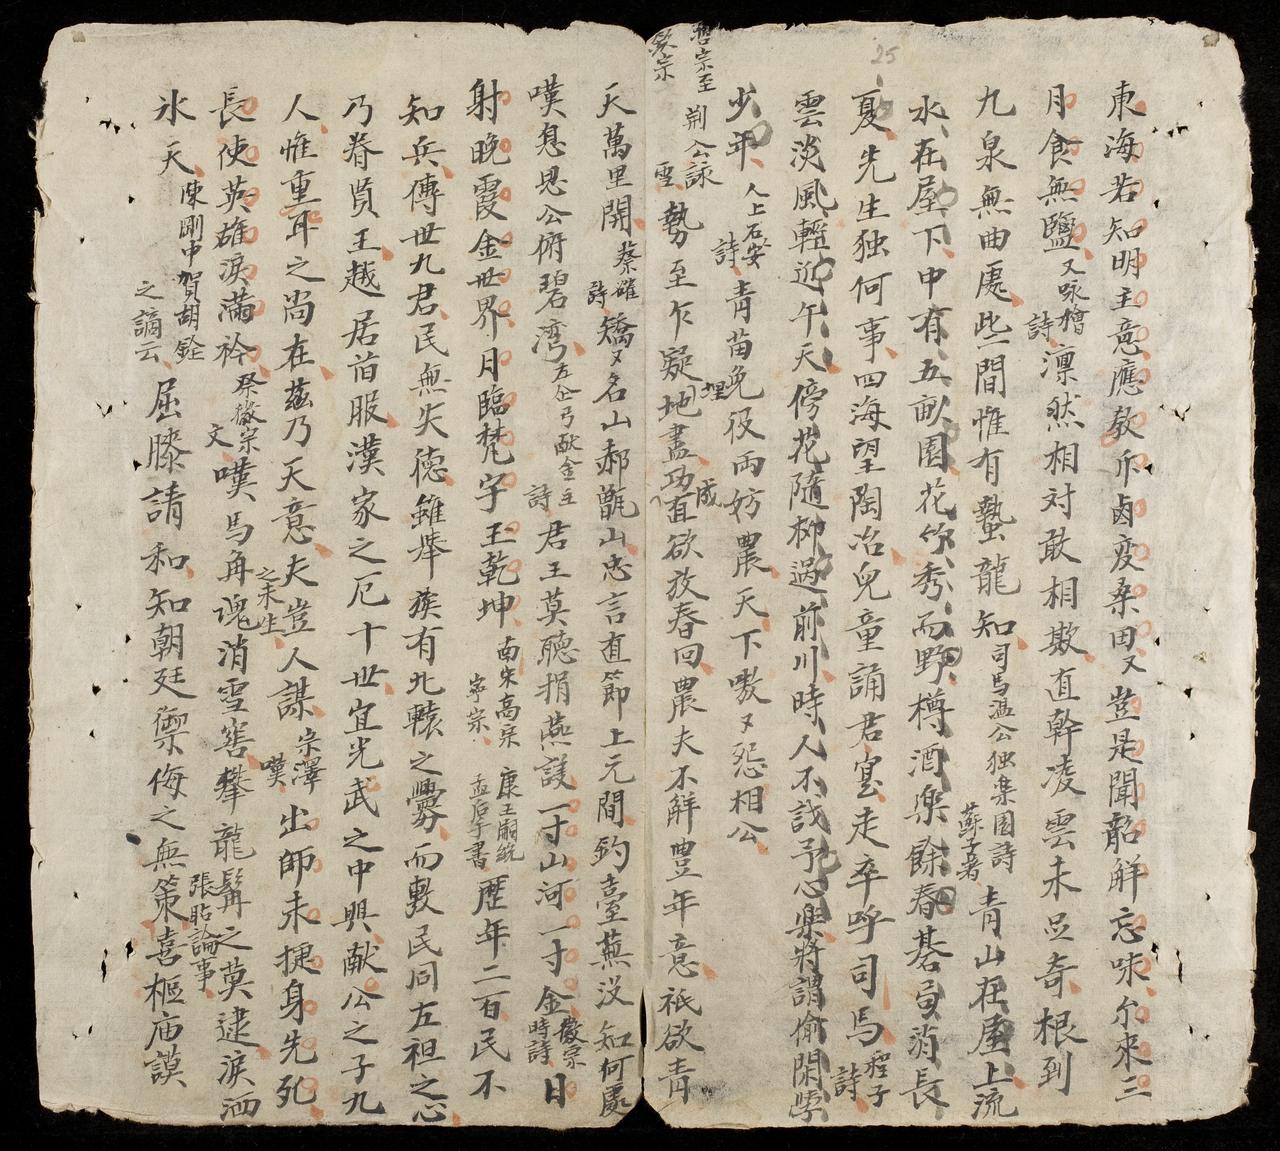 東海若知明主意應教斥鹵变桑田又豈是聞韶解忘味尓來三
月食無鹽又咏檜詩凛然相对敢相欺直幹凌雲未足奇根到
九泉無曲處此間惟有蟄龍知司馬温公独楽園詩蘇子著青山在屋上流
水在屋下中有五畝園花竹秀而野樽酒楽餘春碁局消長
夏先生独何事四海望陶冶兒童誦君宲走卒呼司馬程子詩
雲淡風輕近午天傍花隨柳过前川時人不識予心楽將謂偷閑學
少年人上石安詩青苗免役两妨農天下嗷又怨相公
哲宗至欽宗
荆公詠雪勢至乍疑埋地盡功成直欲放春回農夫不觧豊年意祇欲青
天萬里開蔡確詩矯又名山郝甑山忠言直節上元間釣臺蕪没知何處
嘆息思公俯碧湾左企弓献金主詩君王莫聽捐燕議一寸山河一寸金徽宗時詩日
射晚霞金世界月臨梵字王乾坤南宋高宗寧宗康王嗣統孟后手書歷年二百民不
知兵傳世九君民無失德雖舉族有北轅之釁而敷民同左袒之心
乃眷賢王越居旧服漢家之厄十世宜光武之中興献公之子九
人惟重耳之尚在茲乃天意夫豈人謀宗澤嘆出師未捷身先死
長使英雄淚滿衿祭徽宗文嘆馬角之未生魂消雪窖攀龍髯之莫逮淚洒
氷天陳剛中賀胡銓之謫云屈膝請和知朝廷禦侮之無策張貼論事喜樞庙謨